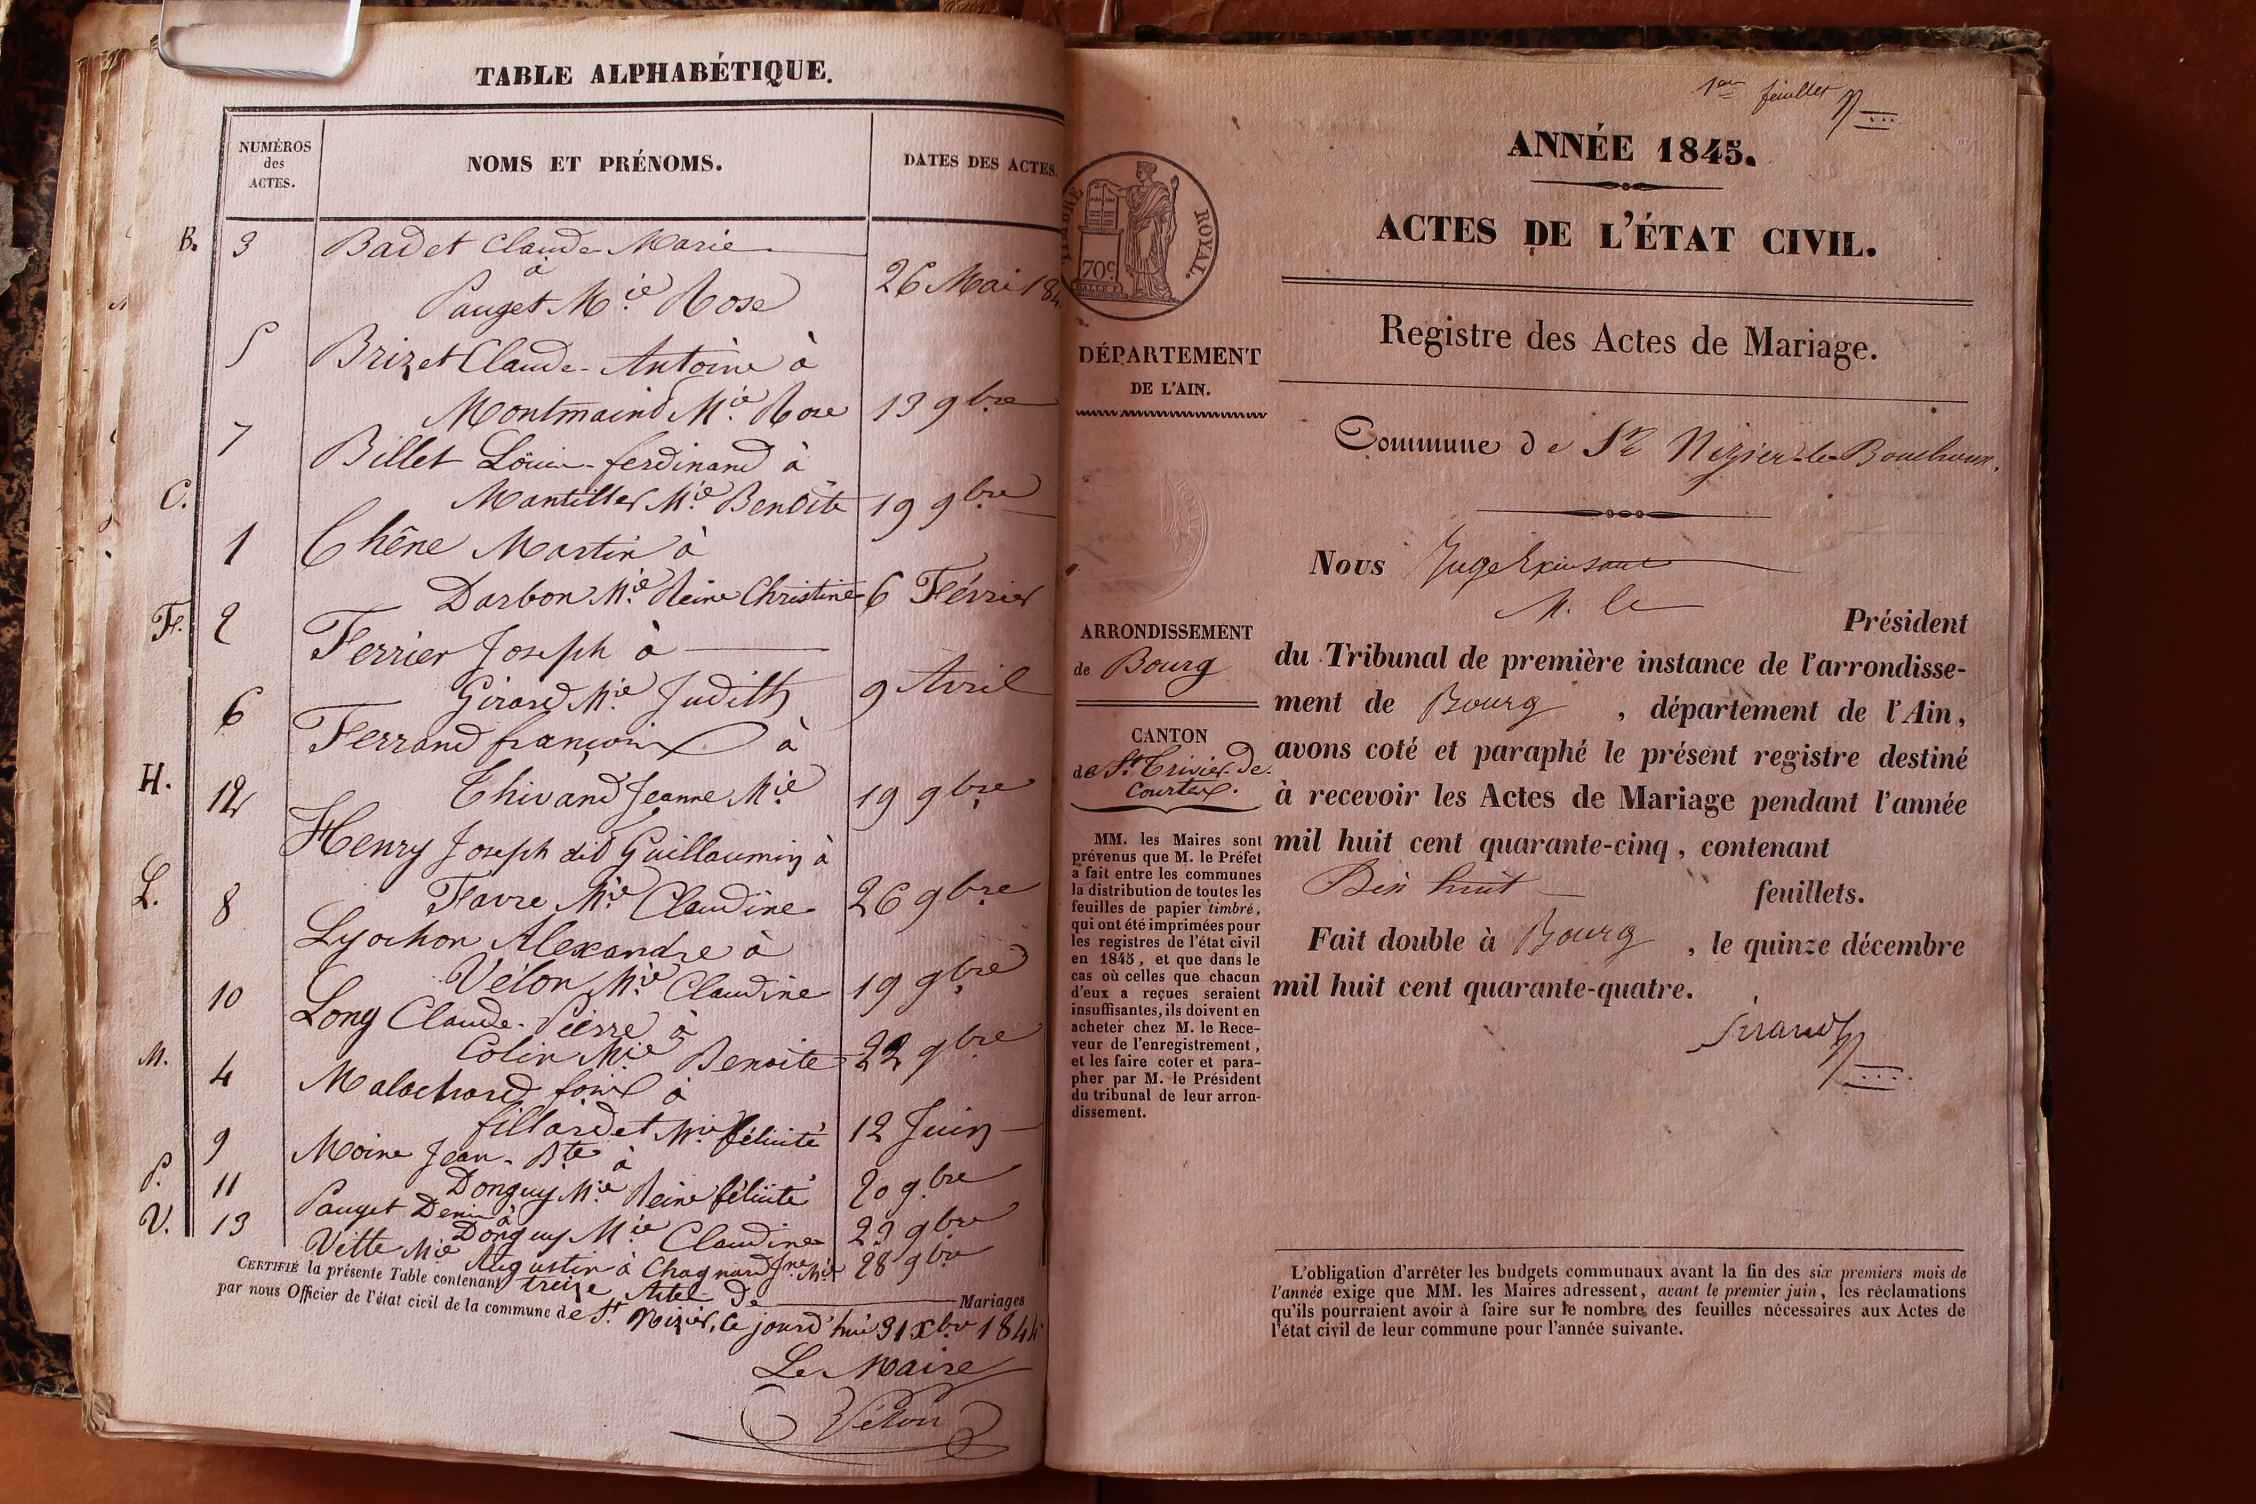 TABLE ALPHABÉTIQUE.
NUMÉROS
des
ACTES.
NOMS ET PRÉNOMS.
DATES DES ACTES.
B. 3 Badet Claude Marie
à
Pauget M.ie Rose 26 Mai 184
5 Brizet Claude-Antoine à
Montmaind M.ie Rose 13 9bre
7 Billet Louis-ferdinand à
Mantillet M.ie Benoîte 19 9bre
C. 1 Chêne Martin à
Darbon M.ie Reine Christine 6 Février
F. 2 Ferrier Joseph à
Girard M.ie Judith 9 Avril
6 Ferrand françois à
Thivand Jeanne M.ie 19 9bre
H. 12 Henry Joseph dit Guillaumin à
Favre M.ie Claudine 26 9bre
L. 8 Lyochon Alexandre à
Vélon M.ie Claudine 19 9bre
10 Long Claude-Pierre à
Colin M.ie Benoite 22 9bre
M. 4 Malachard à
fillardet M.ie félicité 12 Juin
9 Moine Jean-Bte à
Donguy M.ie Reine félicité 20 9bre
P. 11 Pauget Denis à
Donguy M.ie Claudine 23 9bre
V. 13 Vitte M.ie
Augustin à Chagnard Jne M.ie 28 9bre
CERTIFIÉ la présente Table contenant treize Actes de Mariages
par nous Officier de l'état civil de la commune de St. Nizier, ce jourd'hui 31 Xbre 1844
Le Maire
Vélon
1er feuillet
ANNÉE 1845.
ACTES DE L'ÉTAT CIVIL.
TIMBRE ROYAL.
70c.
Registre des Actes de Mariage.
DÉPARTEMENT
DE L'AIN.
Commune de St Nizier-le-Bouchoux.
Nous Juge
M. le
Président
du Tribunal de première instance de l'arrondisse-
ment de Bourg , département de l'Ain,
avons coté et paraphé le présent registre destiné
à recevoir les Actes de Mariage pendant l'année
mil huit cent quarante-cinq, contenant
Dix huit feuillets.
Fait double à Bourg , le quinze décembre
mil huit cent quarante-quatre.
ARRONDISSEMENT
de Bourg
CANTON
de St. Trivier-de-
Courtes.
MM. les Maires sont
prévenus que M. le Préfet
a fait entre les communes
la distribution de toutes les
feuilles de papier timbré,
qui ont été imprimées pour
les registres de l'état civil
en 1845, et que dans le
cas où celles que chacun
d'eux a reçues seraient
insuffisantes, ils doivent en
acheter chez M. le Rece-
veur de l'enregistrement,
et les faire coter et para-
pher par M. le Président
du tribunal de leur arron-
dissement.
L'obligation d'arrêter les budgets communaux avant la fin des six premiers mois de
l'année exige que MM. les Maires adressent, avant le premier juin, les réclamations
qu'ils pourraient avoir à faire sur le nombre des feuilles nécessaires aux Actes de
l'état civil de leur commune pour l'année suivante.